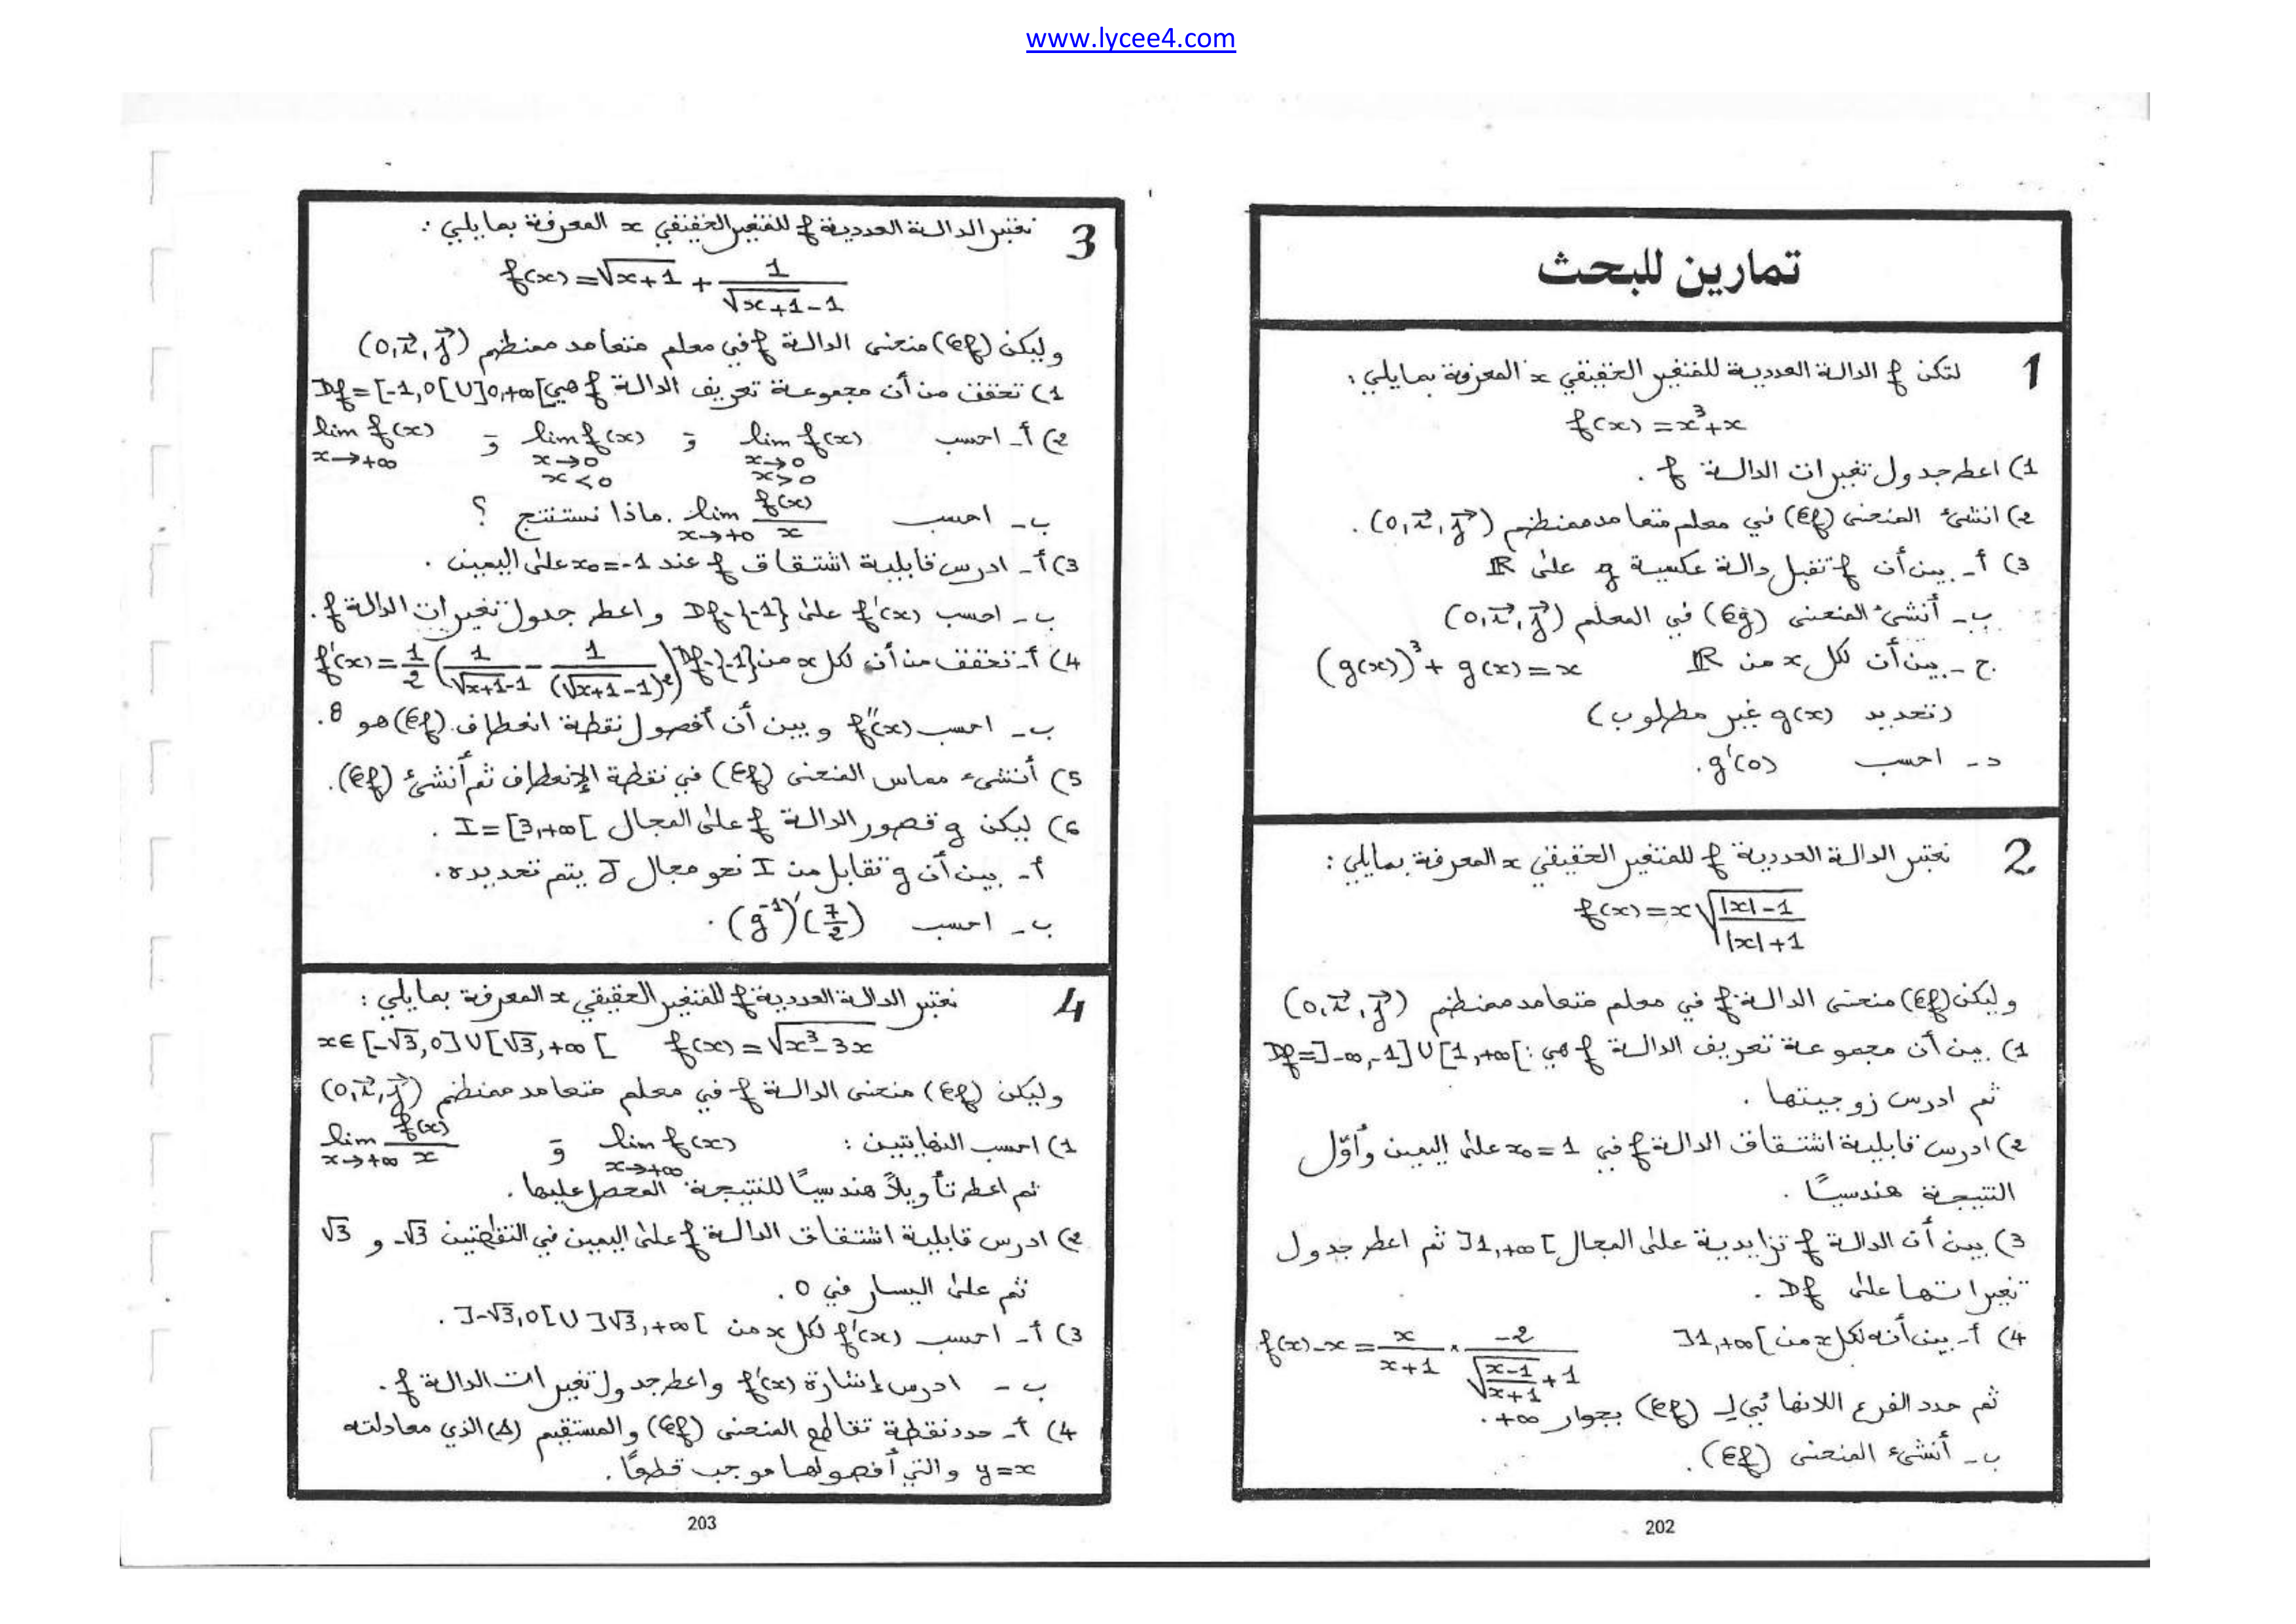 www.lycee4.com
تمارين للبحث
1 لتكن f الدالة العددية للمتغير الحقيقي x المعرفة بمايلي :
f(x) = x³+x
1) اعط جدول تغيرات الدالة f .
2) انشئ المنحنى (Cf) في معلم متعامد ممنظم (O,i⃗,j⃗) .
3) أ- بين أن f تقبل دالة عكسية g على ℝ
ب- أنشئ المنحنى (Cg) في المعلم (O,i⃗,j⃗)
ج- بين أن لكل x من ℝ (g(x))³ + g(x) = x
(تحديد g(x) غير مطلوب)
د- احسب g'(0).
2 نعتبر الدالة العددية f للمتغير الحقيقي x المعرفة بمايلي :
f(x) = x√((|x|-1)/(|x|+1))
وليكن (Cf) منحنى الدالة f في معلم متعامد ممنظم (O,i⃗,j⃗)
1) بين أن مجموعة تعريف الدالة f هي : Df=]-∞,-1]∪[1,+∞[
ثم ادرس زوجيتها .
2) ادرس قابلية اشتقاق الدالة f في x₀=1 على اليمين وأوّل
النتيجة هندسيًا .
3) بين أن الدالة f تزايدية على المجال ]1,+∞[ ثم اعط جدول
تغيراتها على Df .
4) أ- بين أنه لكل x من ]1,+∞[ f(x)-x = x/(x+1) × -2/(√((x-1)/(x+1))+1)
ثم حدد الفرع اللانهائي لـ (Cf) بجوار +∞ .
ب- أنشئ المنحنى (Cf) .
202
3 نعتبر الدالة العددية f للمتغير الحقيقي x المعرفة بمايلي :
f(x) = √(x+1) + 1/(√(x+1)-1)
وليكن (Cf) منحنى الدالة f في معلم متعامد ممنظم (O,i⃗,j⃗)
1) تحقق من أن مجموعة تعريف الدالة f هي Df=[-1,0[∪]0,+∞[
2) أ- احسب lim f(x) x→0 x>0 و lim f(x) x→0 x<0 و lim f(x) x→+∞
ب- احسب lim f(x)/x x→+∞ . ماذا نستنتج ؟
3) أ- ادرس قابلية اشتقاق f عند x₀=-1 على اليمين .
ب- احسب f'(x) على Df-{-1} واعط جدول تغيرات الدالة f .
4) أ- تحقق من أن لكل x من Df-{-1} f'(x) = 1/2 (1/(√(x+1)-1) - 1/(√(x+1)-1)²)
ب- احسب f''(x) وبين أن أفصول نقطة انعطاف (Cf) هو 8.
5) أنشئ مماس المنحنى (Cf) في نقطة الإنعطاف ثم أنشئ (Cf).
6) ليكن g قصور الدالة f على المجال I=[3,+∞[ .
أ- بين أن g تقابل من I نحو مجال J يتم تحديده .
ب- احسب (g⁻¹)'(7/2) .
4 نعتبر الدالة العددية f للمتغير الحقيقي x المعرفة بمايلي :
f(x) = √(x³-3x) x∈[-√3,0]∪[√3,+∞[
وليكن (Cf) منحنى الدالة f في معلم متعامد ممنظم (O,i⃗,j⃗)
1) احسب النهايتين : lim f(x) x→+∞ و lim f(x)/x x→+∞
ثم اعط تأويلاً هندسيًا للنتيجة المحصل عليها .
2) ادرس قابلية اشتقاق الدالة f على اليمين في النقطتين -√3 و √3
ثم على اليسار في 0 .
3) أ- احسب f'(x) لكل x من ]-√3,0[∪]√3,+∞[ .
ب- ادرس إشارة f'(x) واعط جدول تغيرات الدالة f .
4) أ- حدد نقطة تقاطع المنحنى (Cf) والمستقيم (Δ) الذي معادلته
y=x والتي أفصولها موجب قطعًا .
203